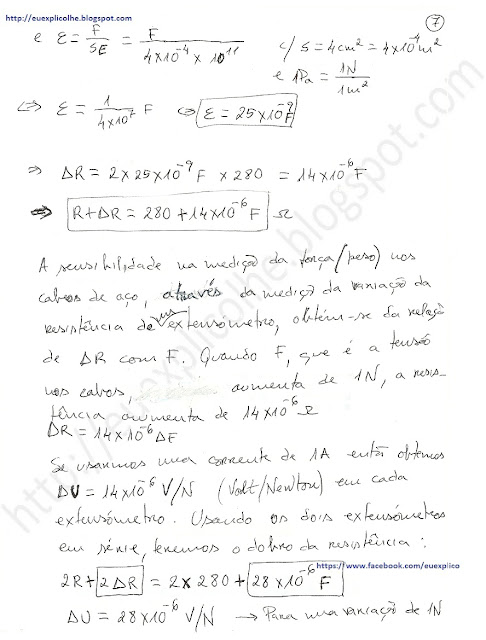 http://euexplicolhe.blogspot.com
7
e ε = F/SE = F/(4×10⁻⁴ × 10¹¹) c/ S = 4cm² = 4×10⁻⁴m²
e 1Pa = 1N/1m²
⇔ ε = 1/(4×10⁷) F ⇔ ε = 25×10⁻⁹F
⇒ ΔR = 2×25×10⁻⁹F × 280 = 14×10⁻⁶F
⇒ R+ΔR = 280 + 14×10⁻⁶F Ω
A sensibilidade na medição da força/(peso) nos
cabos de aço, através da medição da variação da
resistência de um extensómetro, obtém-se da relação
de ΔR com F. Quando F, que é a tensão
nos cabos, aumenta de 1N, a resis-
tência aumenta de 14×10⁻⁶Ω
ΔR = 14×10⁻⁶ΔF
Se usarmos uma corrente de 1A então obtemos
ΔU = 14×10⁻⁶ V/N (Volt/Newton) em cada
extensómetro. Usando os dois extensómetros
em série, teremos o dobro da resistência :
https://www.facebook.com/euexplico
2R + 2ΔR = 2×280 + 28×10⁻⁶ F
ΔU = 28×10⁻⁶ V/N → Para uma variação de 1N
http://euexplicolhe.blogspot.com